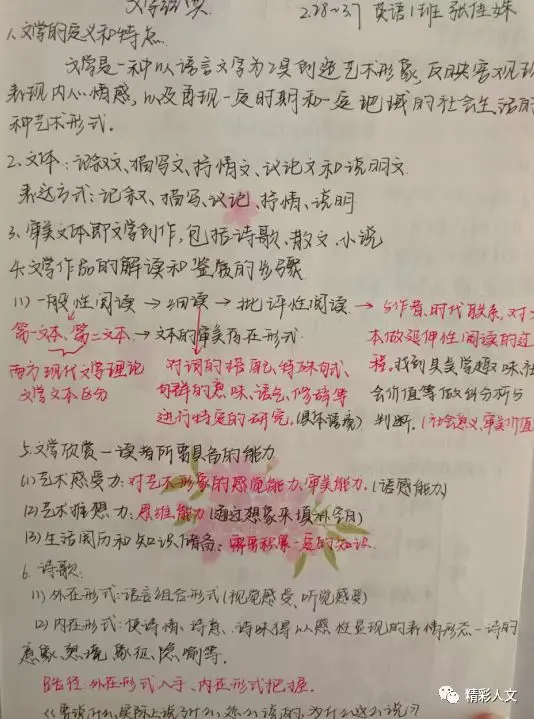 2.28~3.7 英语1班 张佳姝
1.文学的定义和特点.
文学是一种以语言文字为工具创造艺术形象,反映客观现
表现内心情感,以及再现一定时期和一定地域的社会生活的
种艺术形式.
2.文体:记叙文、描写文、抒情文、议论文和说明文.
表达方式:记叙、描写、议论、抒情、说明
3.审美文本即文学创作,包括诗歌、散文、小说
4.文学作品的解读和鉴赏的步骤
(1)一般性阅读→细读→批评性阅读.→与作者、时代联系,对文
第一文本、第二文本.→文本的审美存在形式. 本做延伸性阅读的过
西方现代文学理论 对词的搭配,特殊句式、 程.找到其美学趣味,社
文学文本区分 句群的意味、语气、修辞等 会价值等做出分析与
进行特定的研究.(具体语境) 判断.(社会意义、审美价值
5.文学欣赏—读者所需具备的能力
(1)艺术感受力:对艺术形象的感觉能力、审美能力.(语感能力)
(2)艺术推想力:思维能力(通过想象来填补空白)
(3)生活阅历和知识储备:需要积累一定的知识.
6.诗歌:
(1)外在形式:语言组合形式(视觉感受、听觉感受)
(2)内在形式:使诗情、诗意、诗味得以感性显现的表情形态—诗的
意象、意境、象征、隐喻等.
路径:外在形式入手、内在形式把握.
精彩人文